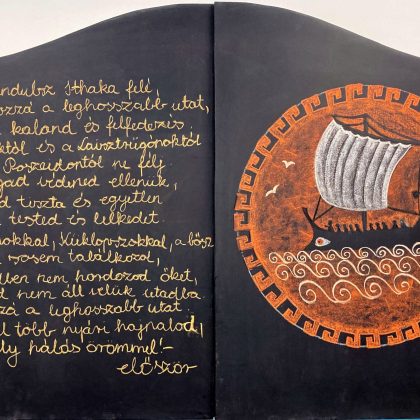 indulsz Ithaka felé,
hozzá a leghosszabb utat,
kaland és felfedezés
któl és a Laisztrügónoktól
Poszeidontól ne félj
gad védined ellenük,
d tiszta és egyetlen
tested és lelkedet.
nokkal, Küklopszokkal, a bősz
sosem találkozol,
ben nem hordozod őket,
nem áll velük utadba.
zá a leghosszabb utat.
l több nyári hajnalod,
ly hálás örömmel! –
először